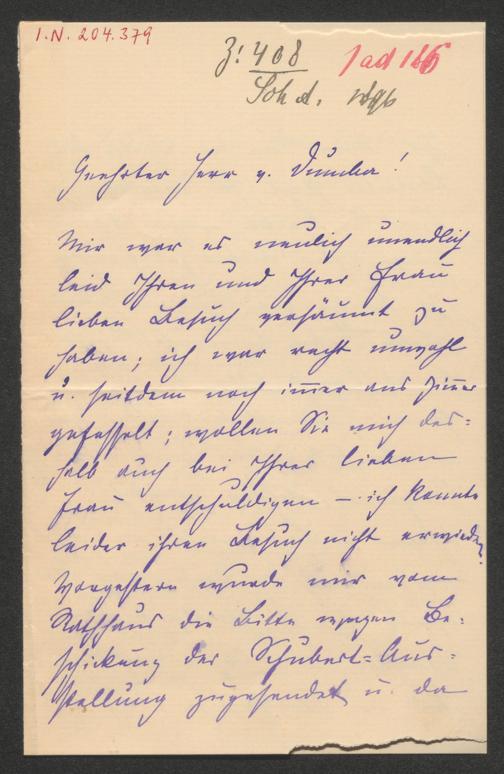 I.N. 204.379
Z: 408
1 ad 186
Sch. d.
Geehrter Herr v. Dumba!
Mir war es neulich unendlich
leid Ihren und Ihrer Frau
lieben Besuch versäumt zu
haben; ich war recht unwohl
u. seitdem noch im̅er ans Zim̅er
gefesselt; wollen Sie mich des=
halb auch bei Ihrer lieben
Frau entschuldigen – ich konnte
leider ihren Besuch nicht erwiedern.
Vorgestern wurde mir vom
Rathhaus die Bitte wegen Be=
schickung der Schubert=Aus=
stellung zugesendet u. da